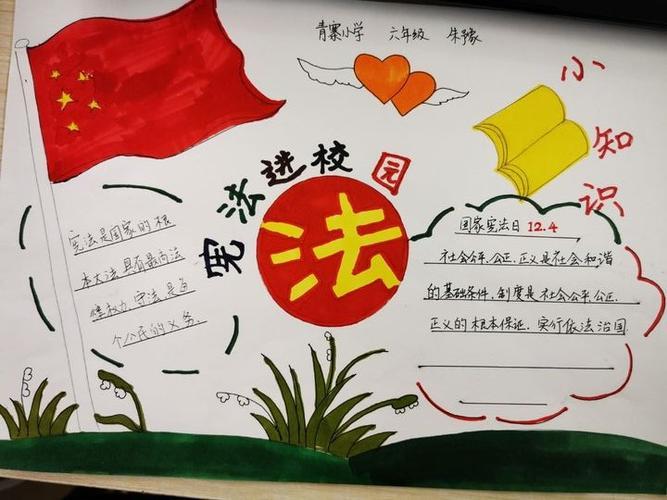 青寨小学 六年级 朱豫
小知识
宪法进校园
法
宪法是国家的根
本大法,具有最高法
律权力,守法是每
个公民的义务.
国家宪法日 12.4
社会公平、公正、正义是社会和谐
的基础条件,制度是社会公平、公正、
正义的根本保证,实行依法治国.